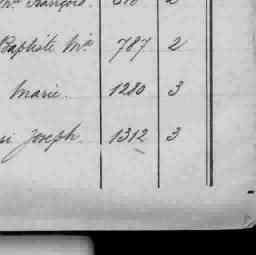 François. 2
Baptiste Mie 787 2
Marie. 1280 3
Joseph. 1312 3